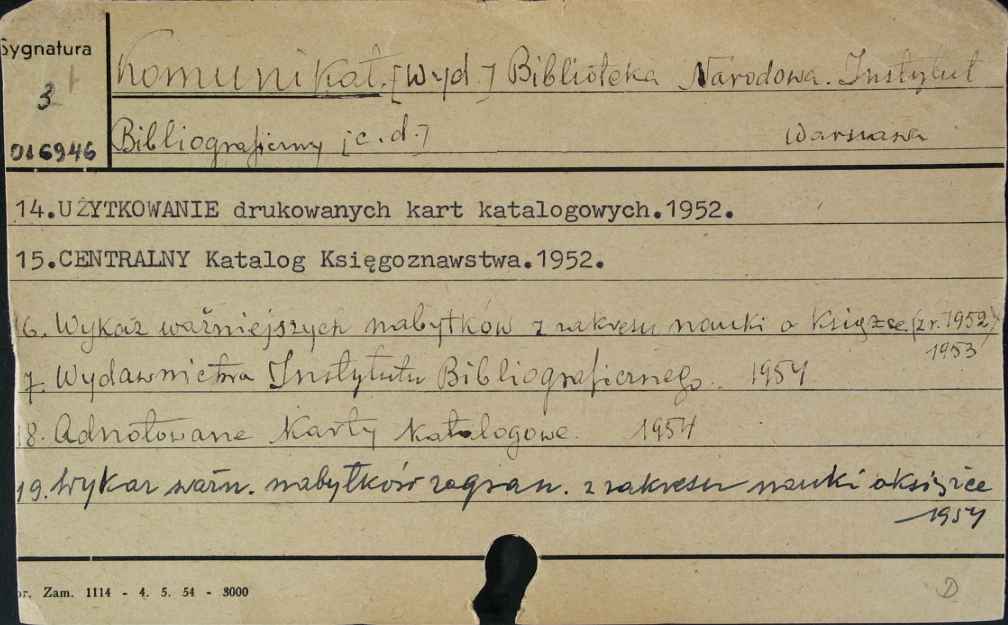 Sygnatura
3
016946
Komunikat. [Wyd.] Biblioteka Narodowa. Instytut
Bibliograficzny [c.d.]
Warszawa
14.UŻYTKOWANIE drukowanych kart katalogowych.1952.
15.CENTRALNY Katalog Księgoznawstwa.1952.
16. Wykaz ważniejszych nabytków z zakresu nauki o książce (z r. 1952)
1953
17. Wydawnictwa Instytutu Bibliograficznego. 1954
18. Adnotowane Karty Katalogowe. 1954
19. Wykaz ważn. nabytków zagran. z zakresu nauki o książce
1954
r. Zam. 1114 - 4. 5. 54 - 3000
D